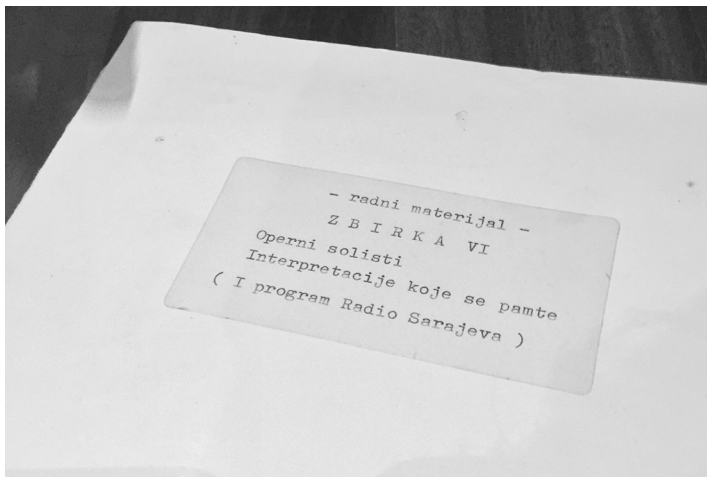 - radni materijal -
Z B I R K A VI
Operni solisti
Interpretacije koje se pamte
( I program Radio Sarajeva )